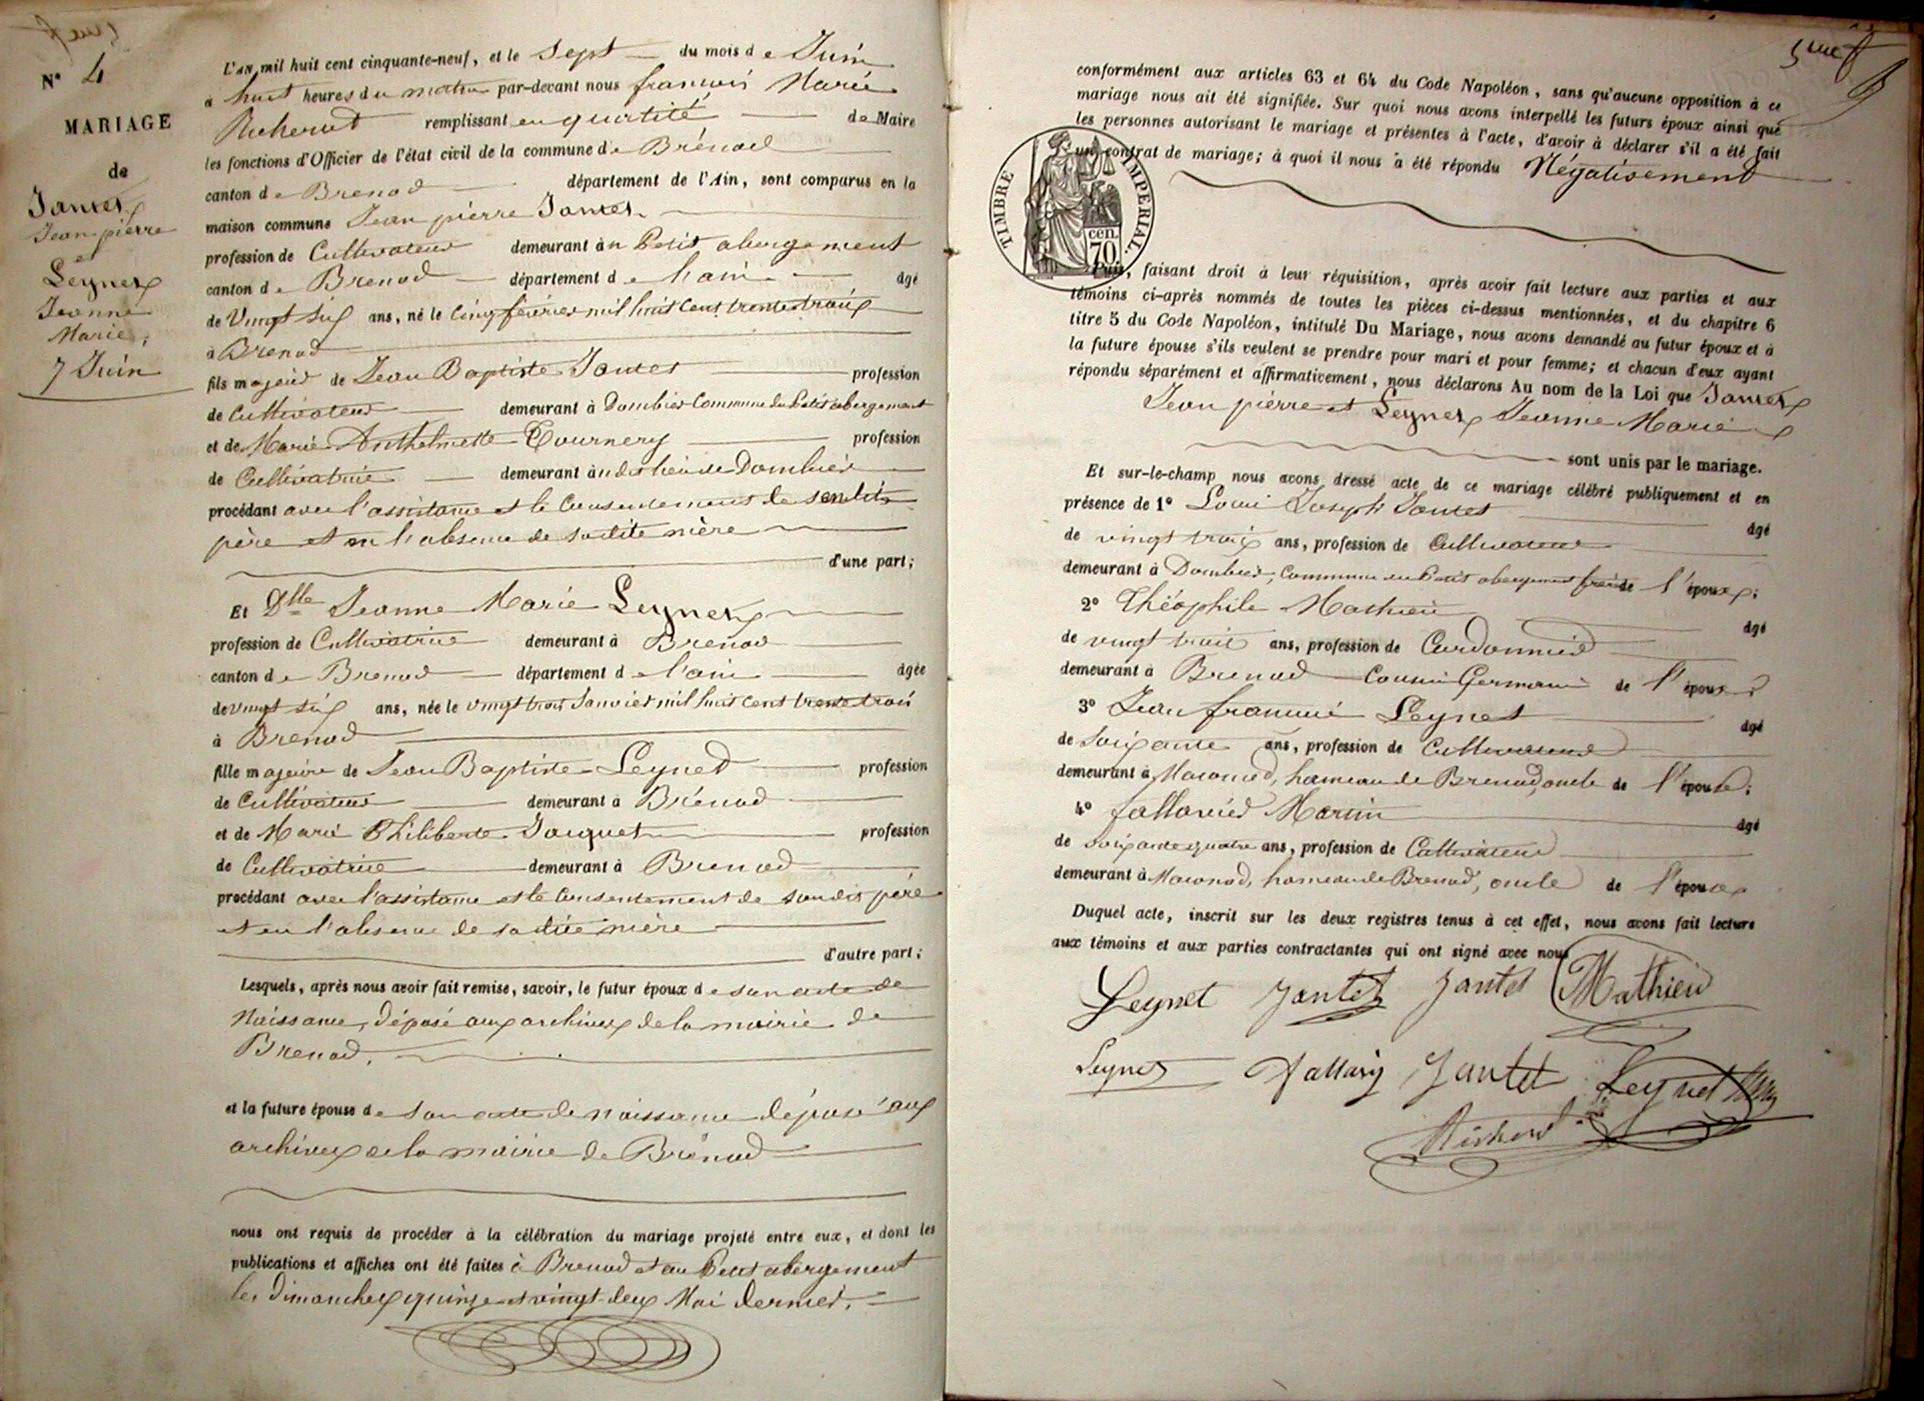 N° 4
MARIAGE
de
Jantet
Jean pierre
et
Leynet
Jeanne
Marie,
7 Juin
L'an mil huit cent cinquante-neuf, et le Sept du mois de Juin
à huit heures du matin par-devant nous françois Marie
remplissant en quartité de Maire
les fonctions d'Officier de l'état civil de la commune de Brénod
canton de Brenod département de l'Ain, sont comparus en la
maison commune Jean pierre Jantet
profession de Cultivateur demeurant àu Petit abergement
canton de Brenod département de l'ain âgé
de Vingt six ans, né le Cinq février mil huit cent trente trois
à Brenod
fils majeur de Jean Baptiste Jantet profession
de Cultivateur demeurant à Dombier Commune du Petit abergement
et de Marie Anthelmette Tournery profession
de Cultivatrice demeurant àu dit lieu de Dombier
procédant avec l'assistance et le Consentement de sondit
père et en l'absence de sadite mère
d'une part;
Et Dlle Jeanne Marie Leynet
profession de Cultivatrice demeurant à Brenod
canton de Brenod département de l'ain âgée
de vingt six ans, née le vingt trois Janvier mil huit cent trente trois
à Brenod
fille majeure de Jean Baptiste Leynet profession
de Cultivateur demeurant à Brénod
et de Marie Philiberte Jacquet profession
de Cultivatrice demeurant à Brenod
procédant avec l'assistance et le Consentement de son dit père
et en l'absence de sa dite mère
d'autre part;
Lesquels, après nous avoir fait remise, savoir, le futur époux de son acte de
Naissance, déposé aux archives de la mairie de
Brenod.
et la future épouse de son acte de naissance déposé aux
archives de la mairie de Brénod
nous ont requis de procéder à la célébration du mariage projeté entre eux, et dont les
publications et affiches ont été faites à Brenod et au Petit abergement
les dimanches quinze et vingt deux Mai dernier.
conformément aux articles 63 et 64 du Code Napoléon, sans qu'aucune opposition à ce
mariage nous ait été signifiée. Sur quoi nous avons interpellé les futurs époux ainsi que
les personnes autorisant le mariage et présentes à l'acte, d'avoir à déclarer s'il a été fait
un contrat de mariage; à quoi il nous a été répondu Négativement
TIMBRE IMPÉRIAL.
70 cen.
Puis, faisant droit à leur réquisition, après avoir fait lecture aux parties et aux
témoins ci-après nommés de toutes les pièces ci-dessus mentionnées, et du chapitre 6
titre 5 du Code Napoléon, intitulé Du Mariage, nous avons demandé au futur époux et à
la future épouse s'ils veulent se prendre pour mari et pour femme; et chacun d'eux ayant
répondu séparément et affirmativement, nous déclarons Au nom de la Loi que Jantet
Jean pierre et Leynet Jeanne Marie
sont unis par le mariage.
Et sur-le-champ nous avons dressé acte de ce mariage célébré publiquement et en
présence de 1° Louis Joseph Jantet âgé
de vingt trois ans, profession de Cultivateur
demeurant à Dombier, Commune du Petit abergement frère de l'époux;
2° Théophile Mathieu âgé
de vingt trois ans, profession de Cordonnier
demeurant à Brenod Cousin Germain de l'époux;
3° Jean françois Leynet âgé
de Soixante ans, profession de Cultivateur
demeurant à Maconod, hameau de Brenod, oncle de l'épouse;
4° fallavier Martin âgé
de Soixante quatre ans, profession de Cultivateur
demeurant à Maconod, hameau de Brenod, oncle de l'épouse
Duquel acte, inscrit sur les deux registres tenus à cet effet, nous avons fait lecture
aux témoins et aux parties contractantes qui ont signé avec nous
Leynet Jantet Jantet Mathieu
Leynet Jantet Leynet